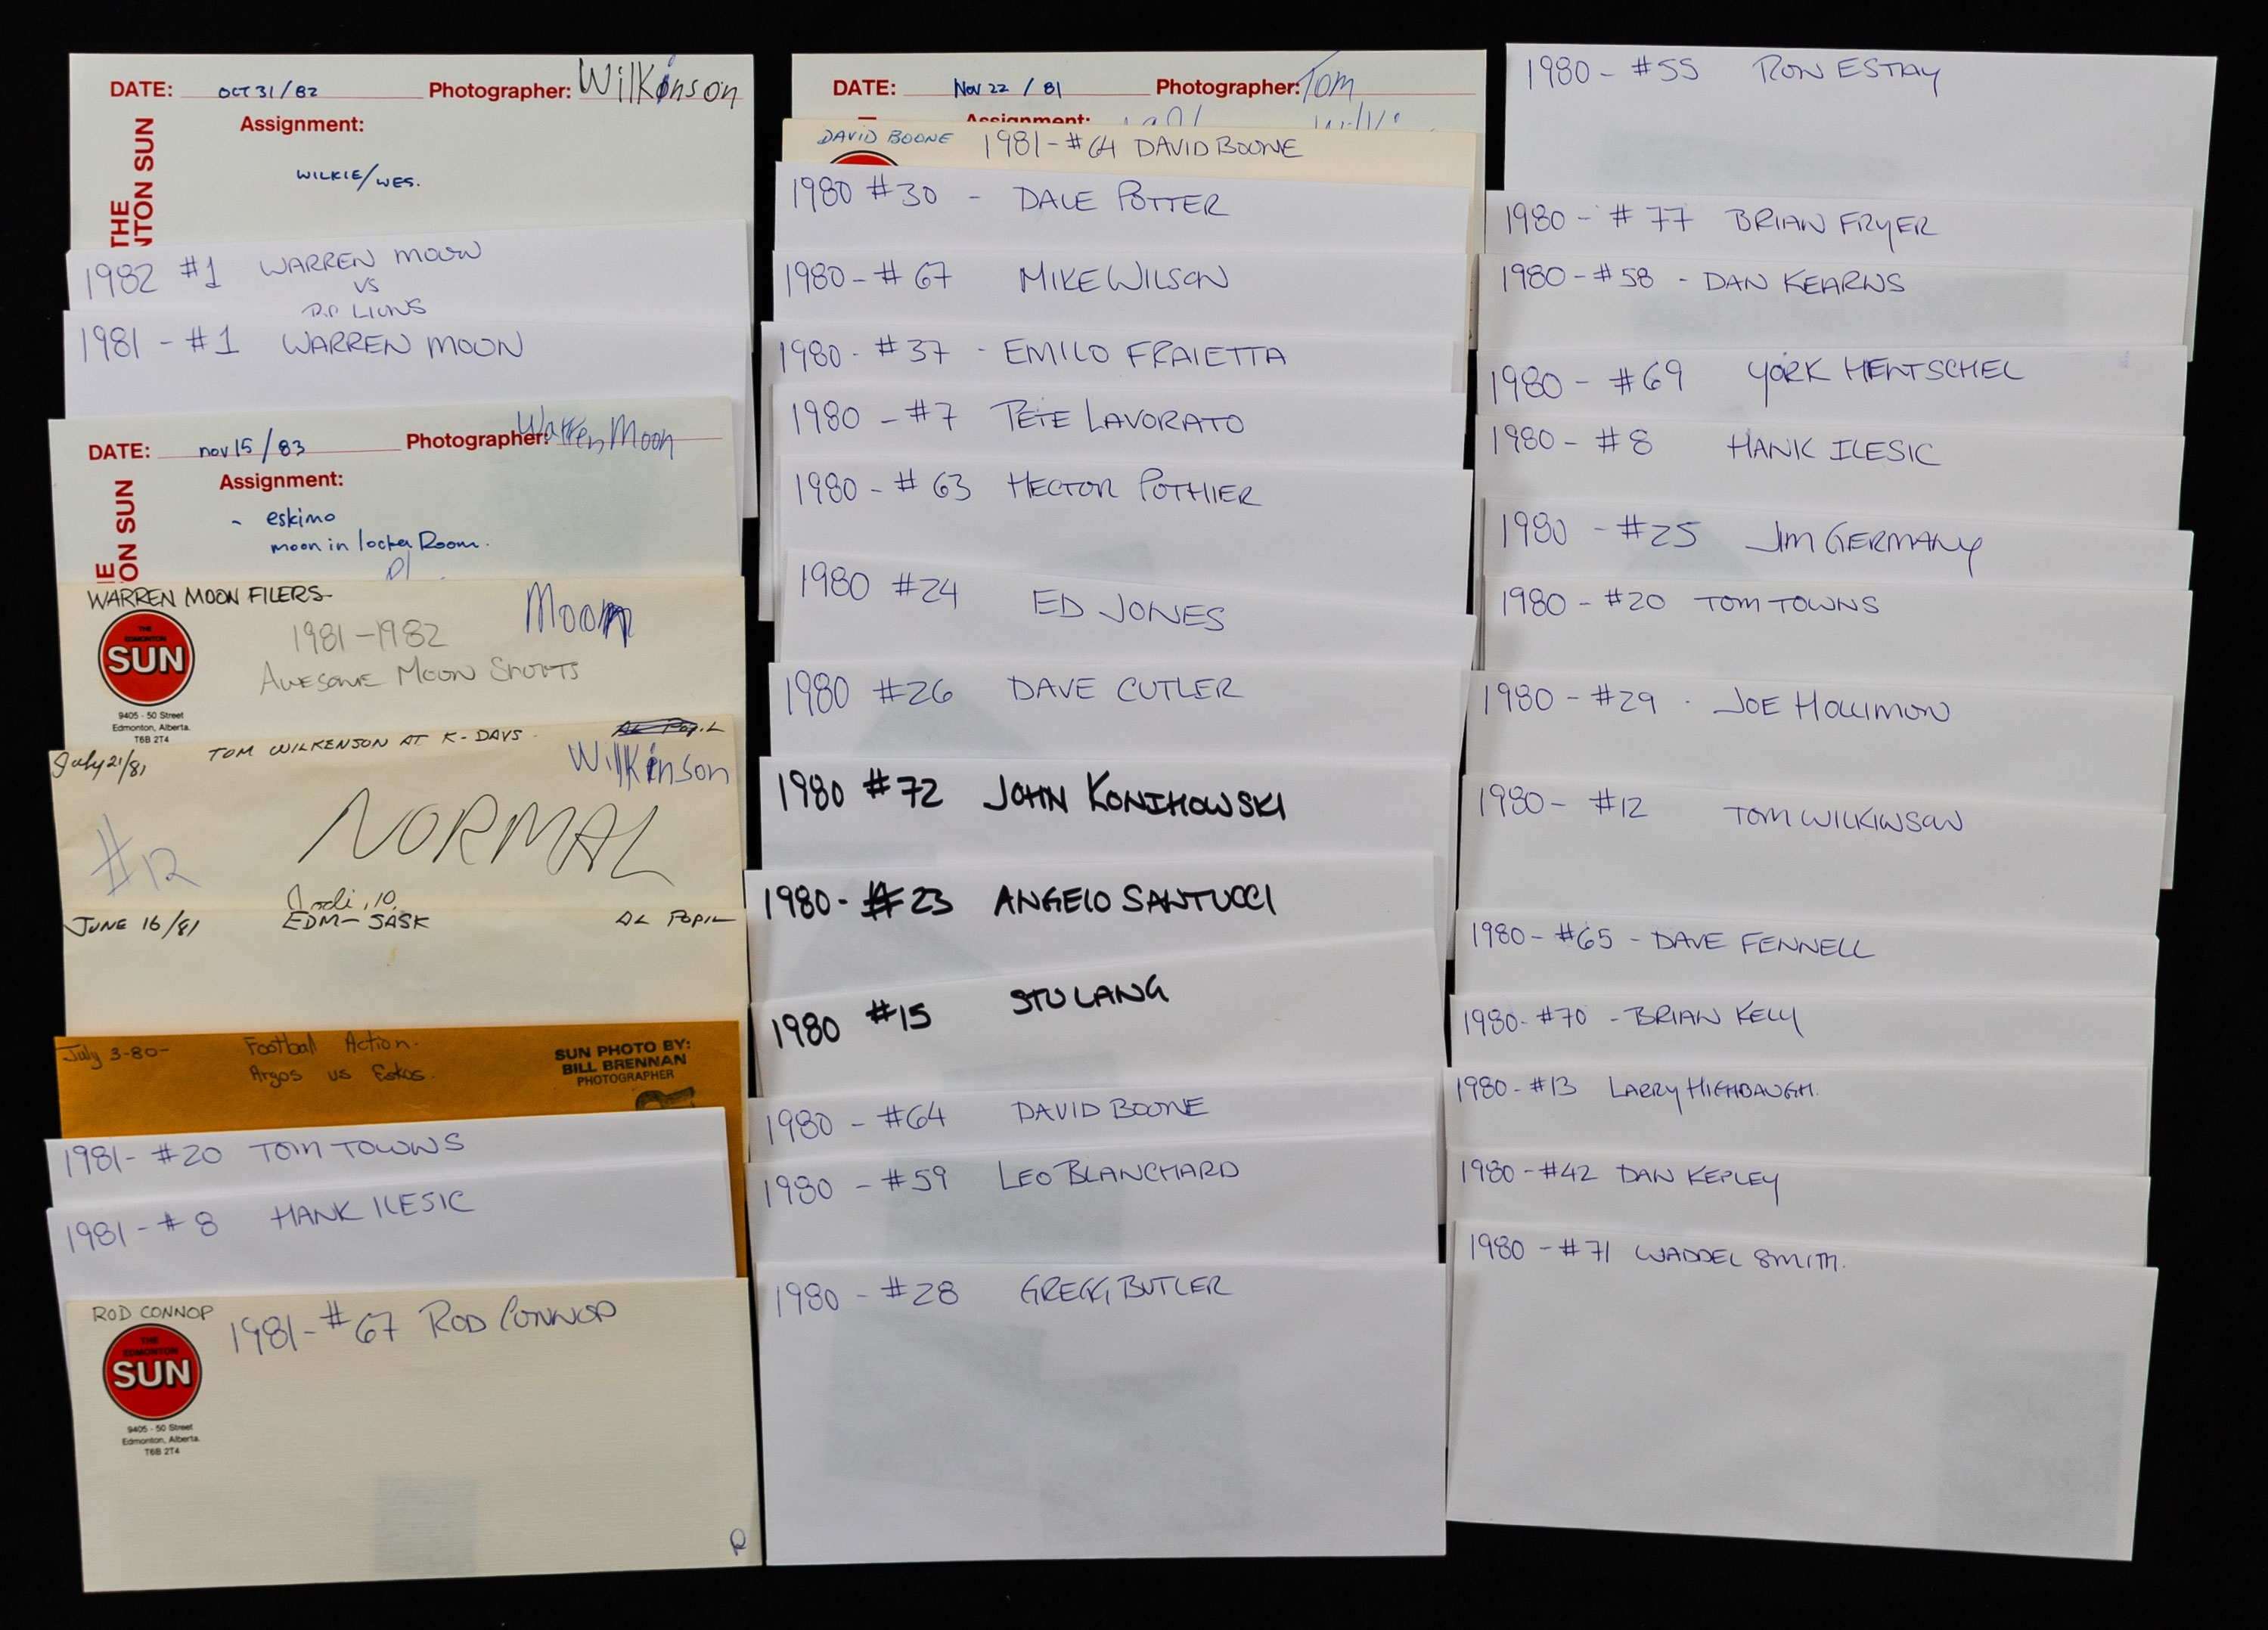 DATE: OCT 31/82 Photographer: Wilkinson
Assignment:
WILKIE/WES.
THE
NTON SUN
1982 #1 WARREN MOON
VS
LIONS
1981 - #1 WARREN MOON
DATE: nov 15/83 Photographer: Warren Moon
Assignment:
- eskimo
moon in locker Room.
ON SUN
WARREN MOON FILERS
Moon
1981-1982
AWESOME MOON SHOTS
THE
EDMONTON
SUN
9405 - 50 Street
Edmonton, Alberta.
T6B 2T4
July 21/81 TOM WILKENSON AT K-DAYS
Wilkinson
NORMAL
#12
JUNE 16/81 EDM-SASK AL POPIL
July 3-80- Football Action.
Argos vs Eskos.
SUN PHOTO BY:
BILL BRENNAN
PHOTOGRAPHER
1981- #20 TOM TOWNS
1981-#8 HANK ILESIC
ROD CONNOP
1981-#67 ROD CONNOP
THE
EDMONTON
SUN
9405 - 50 Street
Edmonton, Alberta.
T6B 2T4
R
DATE: Nov 22 / 81 Photographer: Tom
Assignment:
DAVID BOONE 1981-#64 DAVID BOONE
1980 #30 - DALE POTTER
1980-#67 MIKE WILSON
1980-#37 - EMILO FRAIETTA
1980-#7 PETE LAVORATO
1980-#63 HECTOR POTHIER
1980 #24 ED JONES
1980 #26 DAVE CUTLER
1980 #72 JOHN KONIHOWSKI
1980-#23 ANGELO SANTUCCI
1980 #15 STU LANG
1980 - #64 DAVID BOONE
1980 - #59 LEO BLANCHARD
1980 - #28 GREGG BUTLER
1980- #55 RON ESTAY
1980- #77 BRIAN FRYER
1980-#58 - DAN KEARNS
1980- #69 YORK HENTSCHEL
1980- #8 HANK ILESIC
1980 -#25 JIM GERMANY
1980-#20 TOM TOWNS
1980-#29 - JOE HOLLIMON
1980- #12 TOM WILKINSON
1980-#65 - DAVE FENNELL
1980-#70 - BRIAN KELLY
1980-#13 LARRY HIGHBAUGH.
1980-#42 DAN KEPLEY
1980 -#71 WADDEL SMITH.